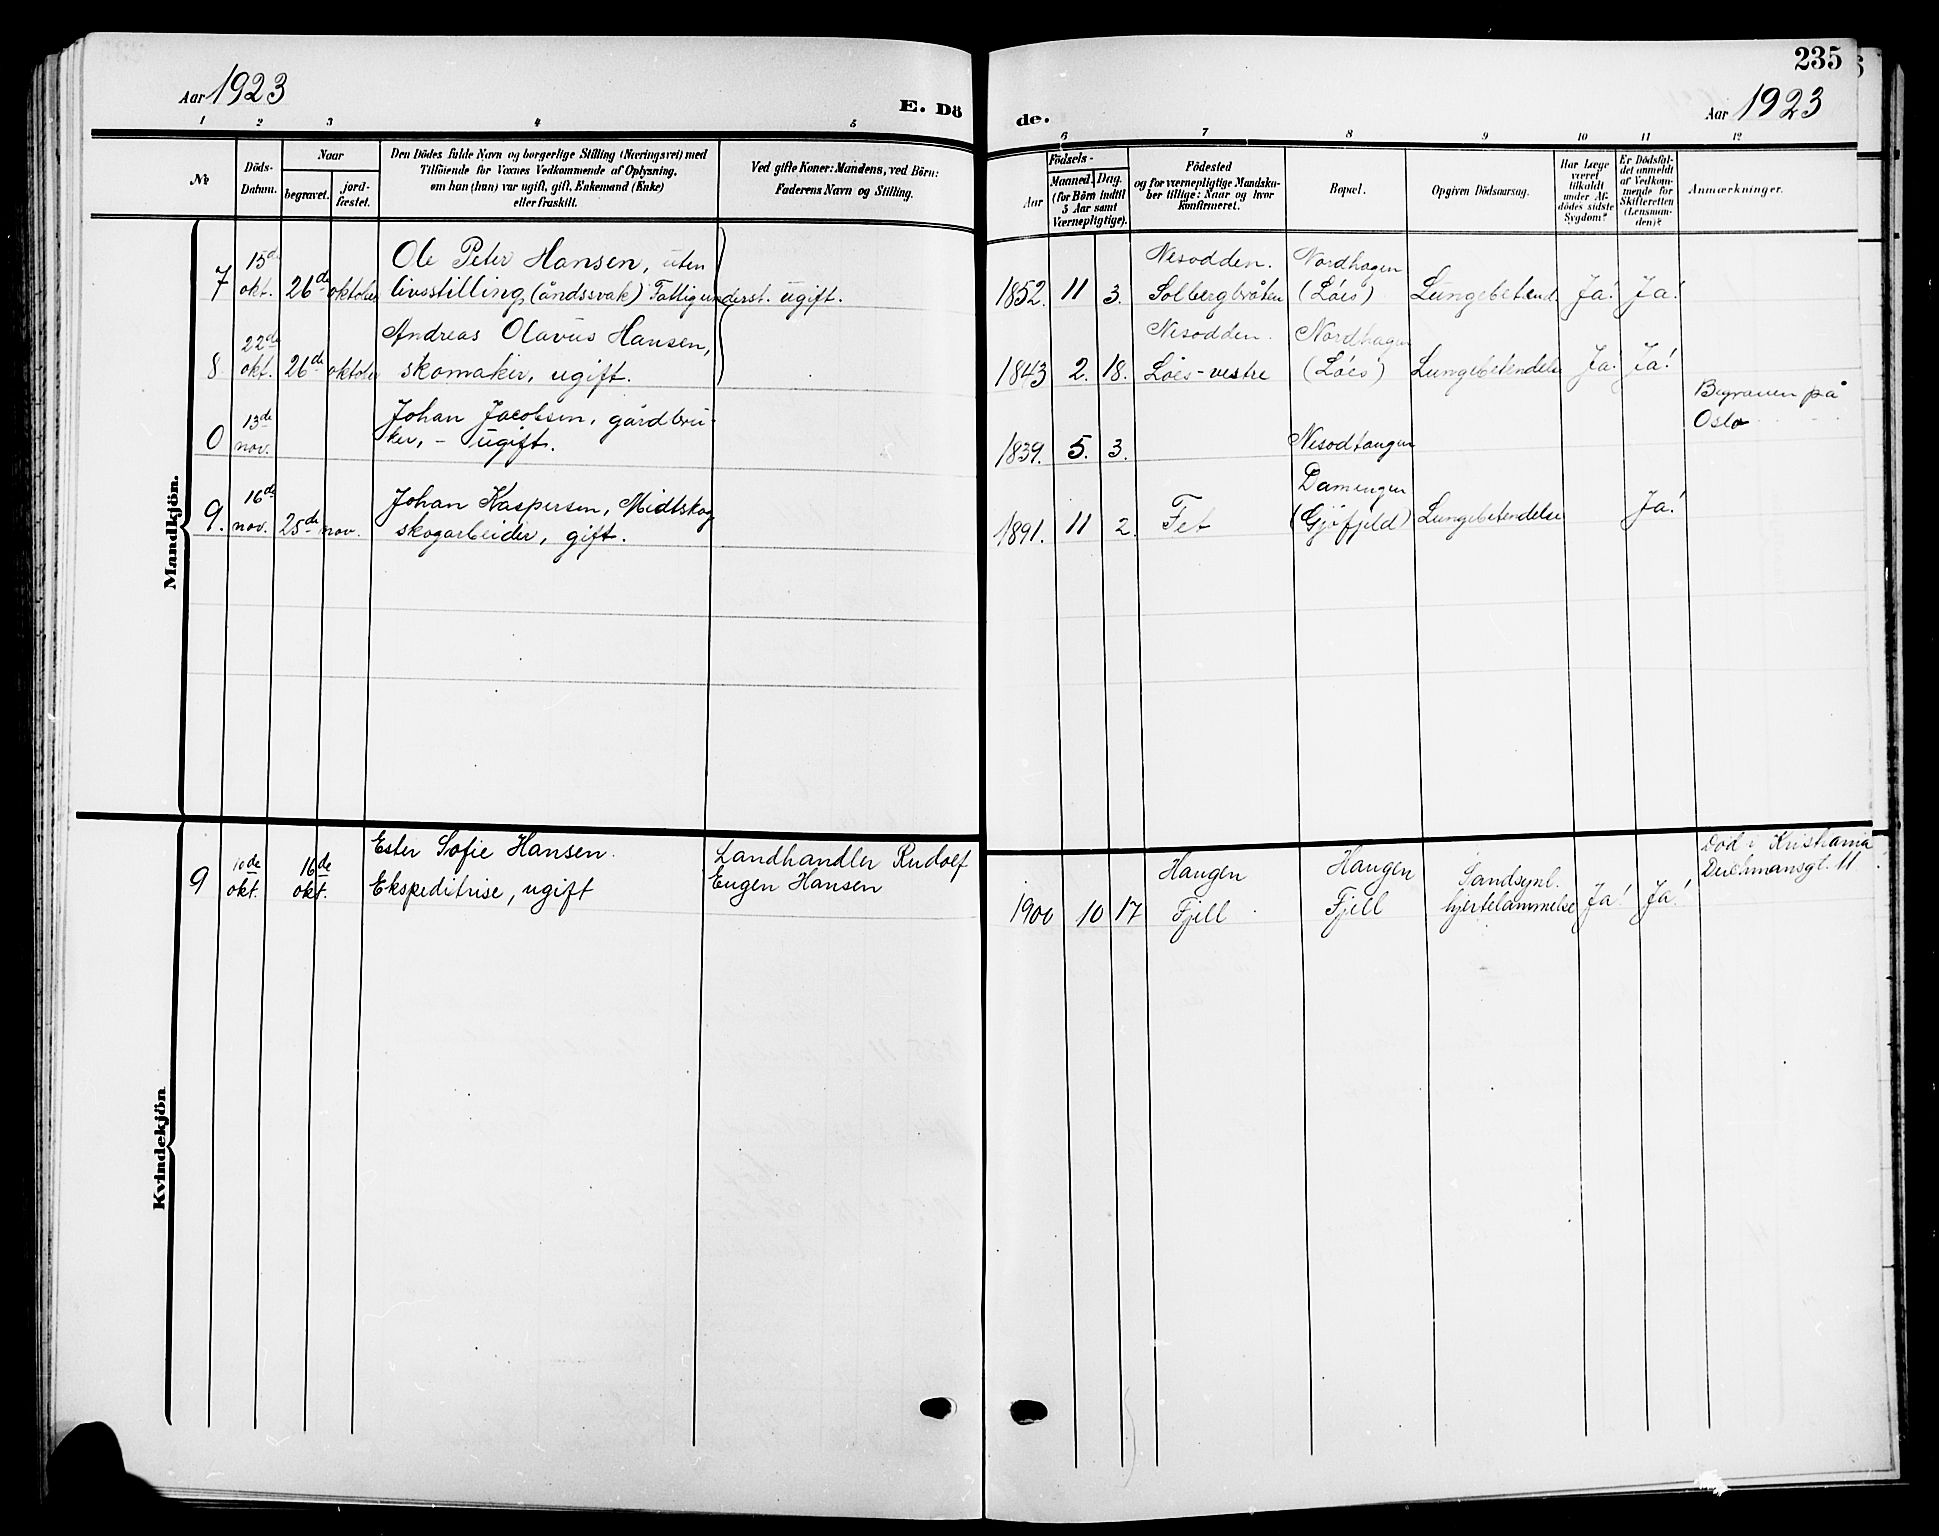 235
Aar 1923
E. Dö
de.
Aar 1923
1 2 3 4 5
6 7 8 9 10 11 12
№
Döds-
Datum.
Naar
begravet.
jord-
fæstet.
Den Dödes fulde Navn og borgerlige Stilling (Næringsvei) med
Tilföiende for Voxnes Vedkommende af Oplysning,
om han (hun) var ugift, gift, Enkemand (Enke)
eller fraskilt.
Ved gifte Koner: Mandens, ved Börn:
Faderens Navn og Stilling.
Födsels-
Aar
Maaned. Dag.
(for Börn indtil
5 Aar samt
Værnepligtige).
Födested
og for værnepligtige Mandska-
ber tillige: Naar og hvor
konfirmeret.
Bopæl.
Opgiven Dödsaarsag.
Har Læge
været
tilkaldt
under Af-
dödes sidste
Sygdom?
Er Dödsfal-
det anmeldt
af Vedkom-
mende for
Skifteretten
(Lensman-
den)?
Anmærkninger.
Mandkjön.
7
15de
okt.
26de oktober
Ole Peter Hansen, uten
livsstilling (åndssvak) Fattigunderst. ugift.
1852. 11 3.
Nesodden.
Solbergbråten
Nordhagen
(Löes)
Lungebetend.
Ja! Ja!
8
22de
okt.
26de oktober
Andreas Olavus Hansen,
skomaker, ugift.
1843 2. 18.
Nesodden.
Löes-vestre
Nordhagen
(Löes)
Lungebetendelse
Ja! Ja!
0
13de
nov.
Johan Jacobsen, gårdbru-
ker, - ugift.
1839. 5. 3.
Nesodtangen
Begraven på
Oslo
9.
16de
nov.
25de nov.
Johan Kaspersen, Midtskog
skogarbeider, gift.
1891. 11 2.
Fet
Damengen
(Gjöfjeld)
Lungebetendelse
Ja!
Kvindekjön
9
10de
okt.
16de
okt.
Ester Sofie Hansen.
Ekspeditrise, ugift
Landhandler Rudolf
Eugen Hansen
1900 10 17
Haugen
Fjell
Haugen
Fjell
Sandsynl.
hjertelammelse
Ja! Ja!
Död i Kristiania
Deichmansgt. 11